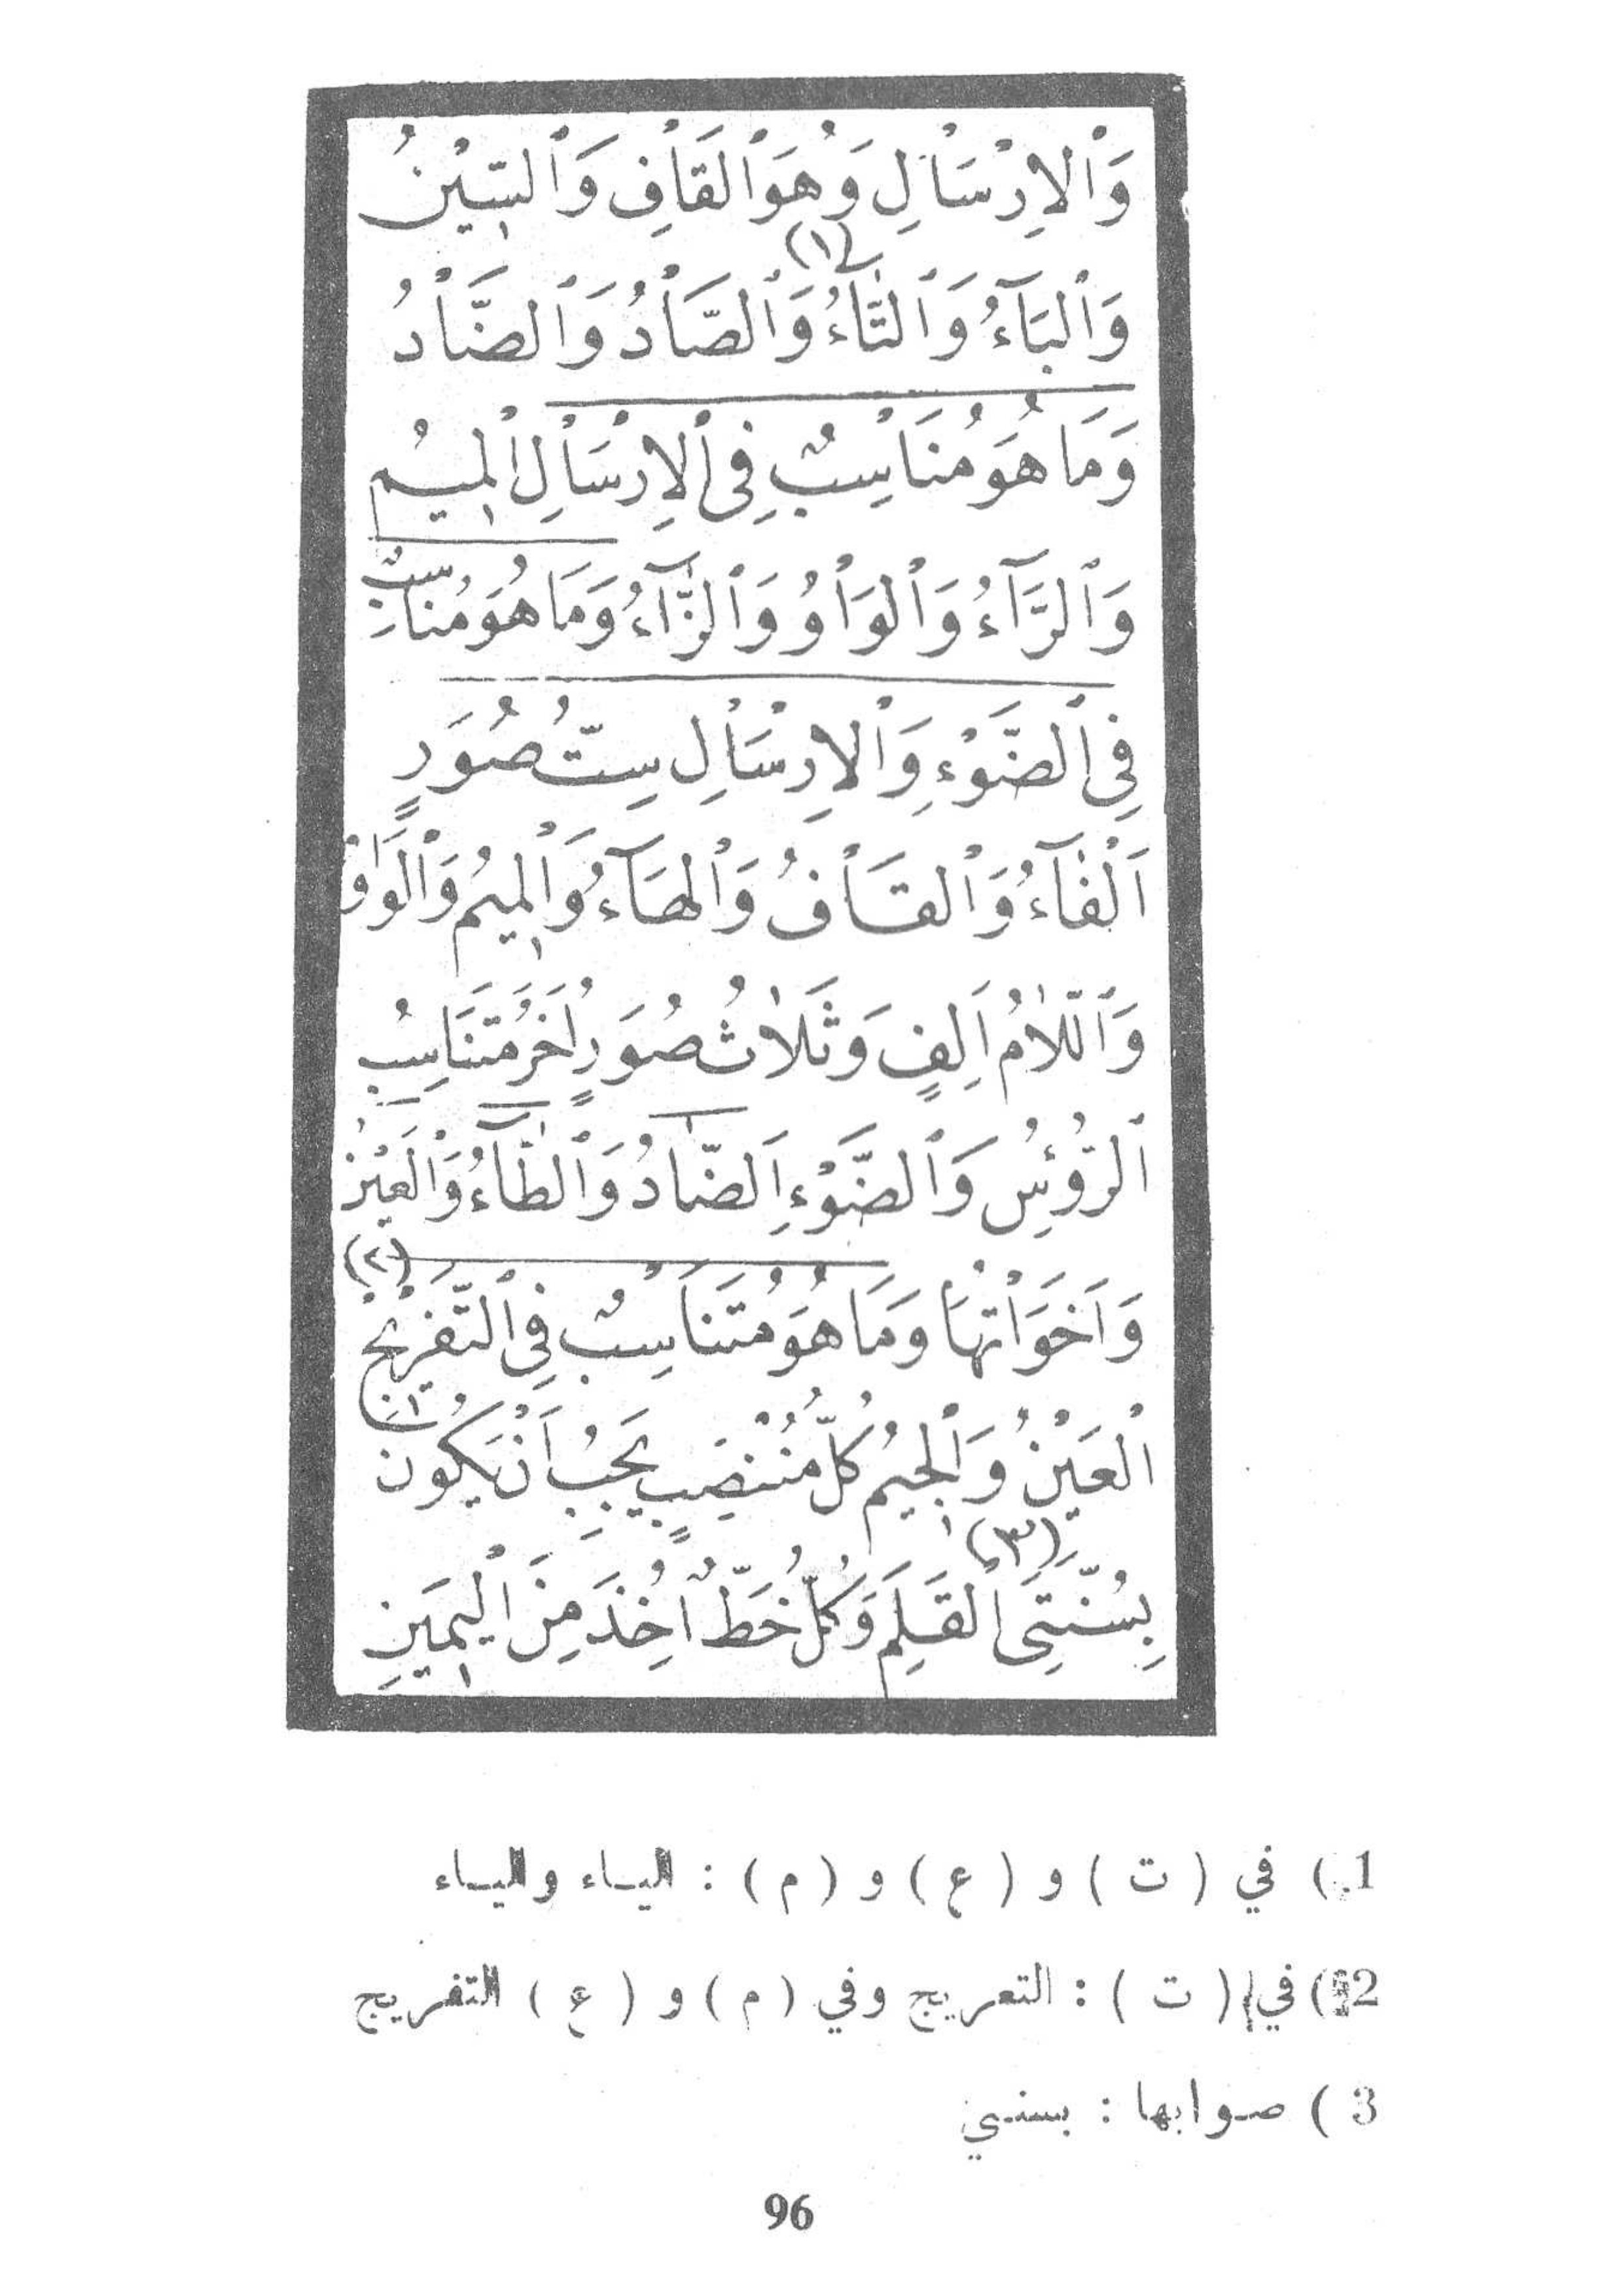 وَٱلاِرْسَاْلِ وَهُوَٱلقَاْفِ وَٱلسّيْنُ
وَٱلبَآءُ وَٱلتّآءُ (١) وَٱلصّاْدُ وَٱلضّاْدُ
وَمَا هُوَ مُنَاْسِبٌ فِى ٱلاِرْسَاْلِ ٱلمِيمُ
وَٱلرَّآءُ وَٱلوَاْوُ وَٱلزّآءُ وَمَا هُوَ مُنَاسِبٌ
فِى ٱلضَّوْءِ وَٱلاِرْسَاْلِ سِتُّ صُوَرٍ
اَلْفَآءُ وَٱلقَاْفُ وَٱلهَآءُ وَالمِيمُ وَٱلوَاوُ
وَٱللّامُ اَلِفٍ وَثَلَاثُ صُوَرٍ اُخَرُ مُتَنَاسِبُ
ٱلرُّؤُسِ وَٱلضَّوْءِ اَلضّادُ وَٱلطّآءُ وَٱلْعَيْنُ
وَاَخَوَاْتُهَا وَمَا هُوَ مُتَنَاسِبٌ فِى ٱلتَّفْرِيْجِ (٢)
اْلعَيْنُ وَاَلجِيمُ كُلُّ مُنْتَصِبٍ يَجِبُ اَنْ يَكُونَ
بِسُنَّتَىِ (٣) اْلقَلَمِ وَكُلُّ خَطٍّ اُخِذَ مِنَ اْليَمِيَنِ
1) في ( ت ) و ( ع ) و ( م ) : الياء والياء
2) في ( ت ) : التعريج وفي ( م ) و ( ع ) التفريج
3 ) صوابها : بسني
96